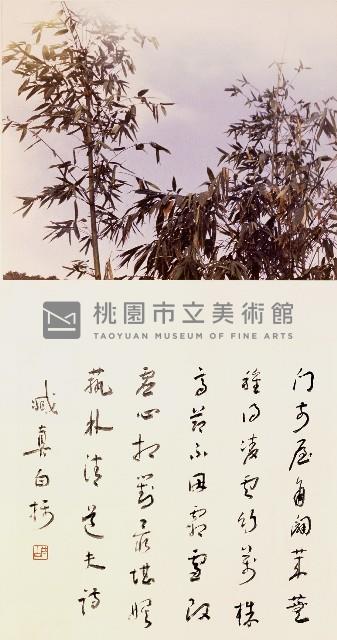 桃園市立美術館
TAOYUAN MUSEUM OF FINE ARTS
門前屋角闢萊蕪
種得凌雲竹萬株
高節不因霜雪改
虛心相對最堪娛
蓺林清道夫詩
臧真自